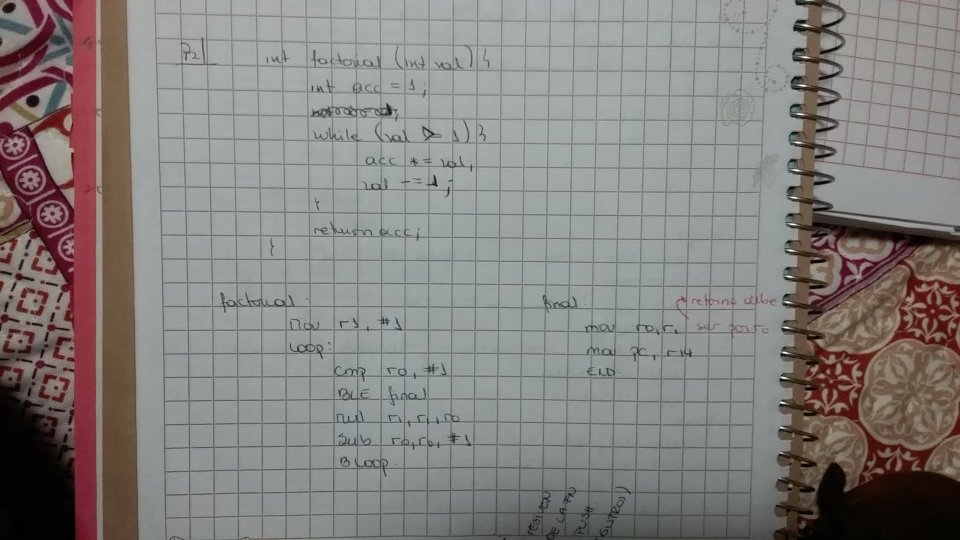 P2|
int factorial (int val) {
int acc = 1;
while (val > 1) {
acc *= val;
val -= 1;
}
return acc;
}
factorial:
Mov r1, #1
Loop:
cmp r0, #1
BLE final
mul r1, r1, r0
Sub r0, r0, #1
B Loop.
final:
mov r0, r1
mov pc, r14
END.
retorno debe
ser por r0
DE LA FN
PUSH